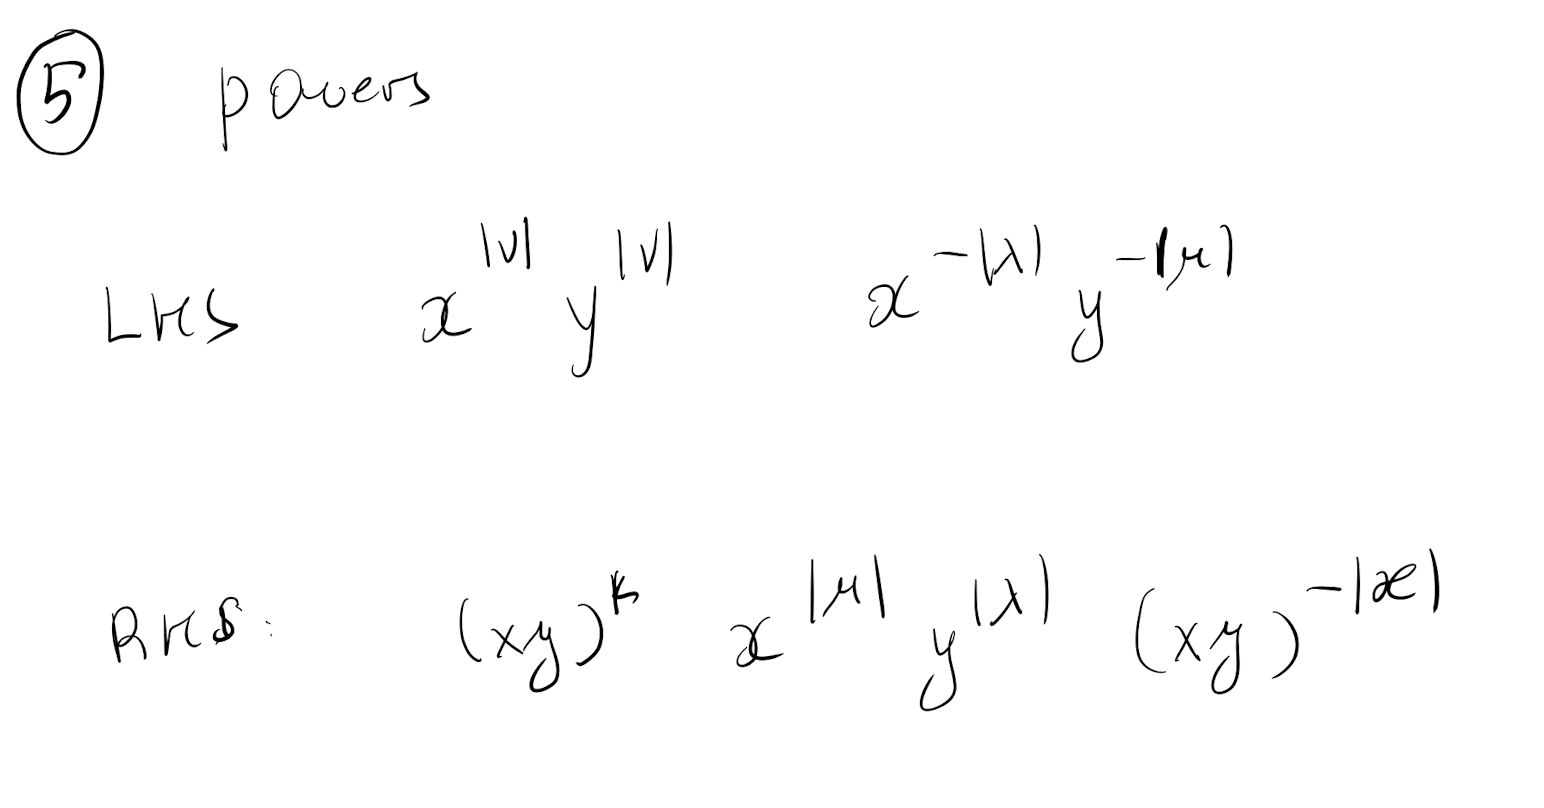 ⑤ powers
LHS x^{|ν|} y^{|ν|} x^{-|λ|} y^{-|μ|}
RHS: (xy)^k x^{|μ|} y^{|λ|} (xy)^{-|æ|}